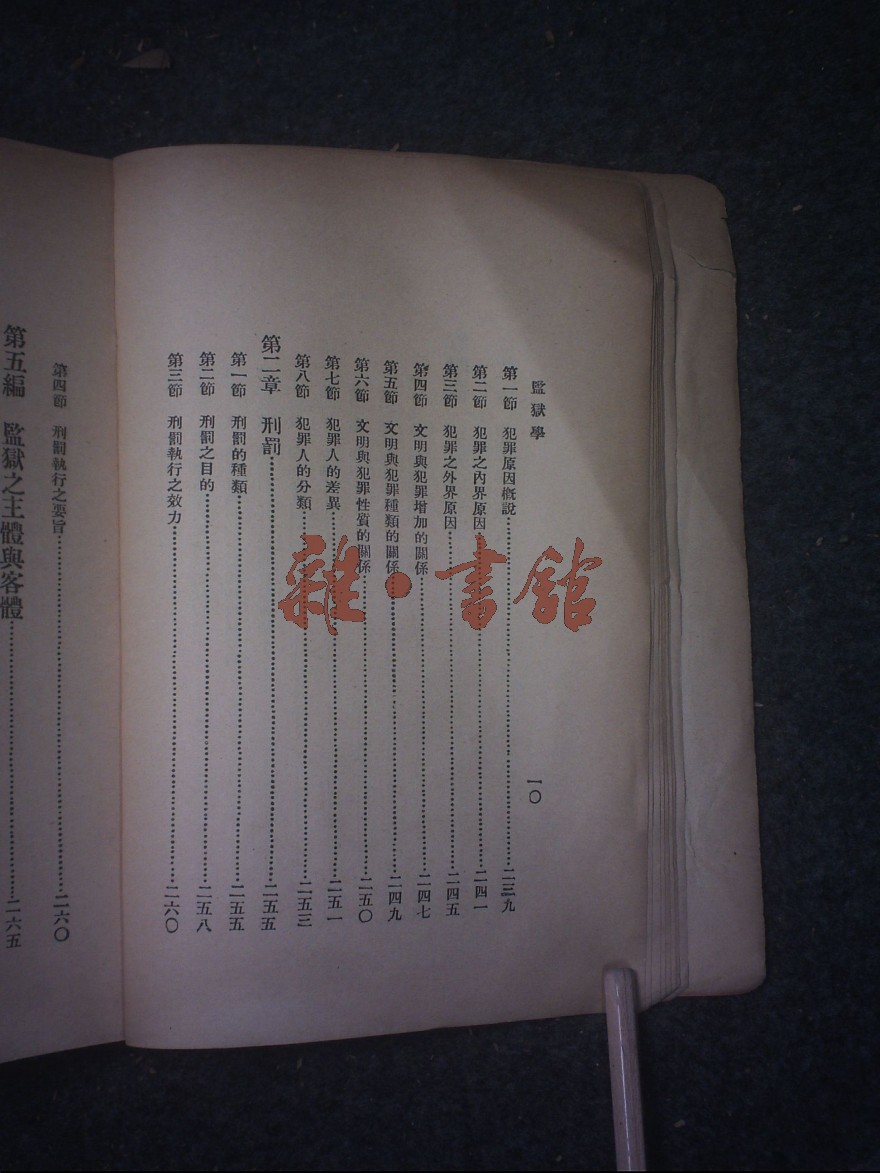 監獄學
一〇
第一節 犯罪原因概說………二三九
第二節 犯罪之內界原因………二四一
第三節 犯罪之外界原因………二四五
第四節 文明與犯罪增加的關係………二四七
第五節 文明與犯罪種類的關係………二四九
第六節 文明與犯罪性質的關係………二五〇
第七節 犯罪人的差異………二五一
第八節 犯罪人的分類………二五三
第二章 刑罰………二五五
第一節 刑罰的種類………二五五
第二節 刑罰之目的………二五八
第三節 刑罰執行之效力………二六〇
第四節 刑罰執行之要旨………二六〇
第五編 監獄之主體與客體………二六五
雜·書館